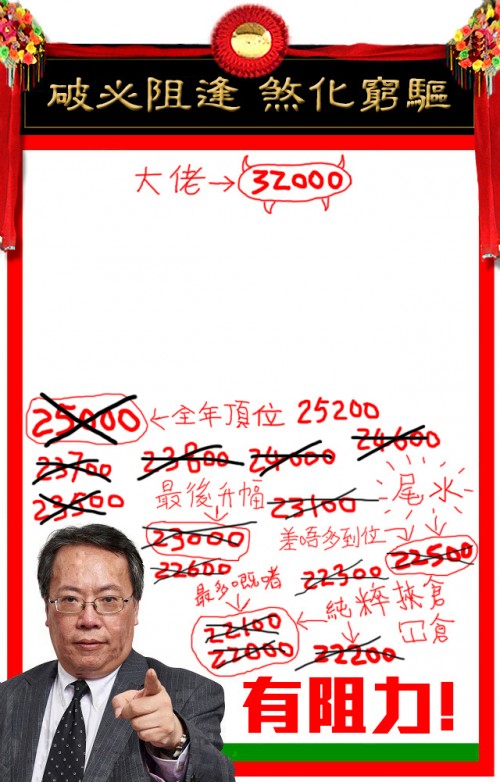 破必阻逢 煞化窮驅
大佬→32000
25000←全年頂位 25200
24600
23700 23800 24000
23500 最後升幅 23100 尾水
23000 差唔多到位→22500
22600 22300
最多嘅啫 純粹挾倉
22100 冚倉
22000 22200
有阻力!